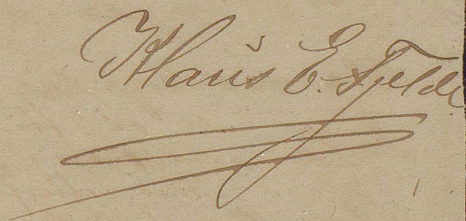 Klaus E. Felde